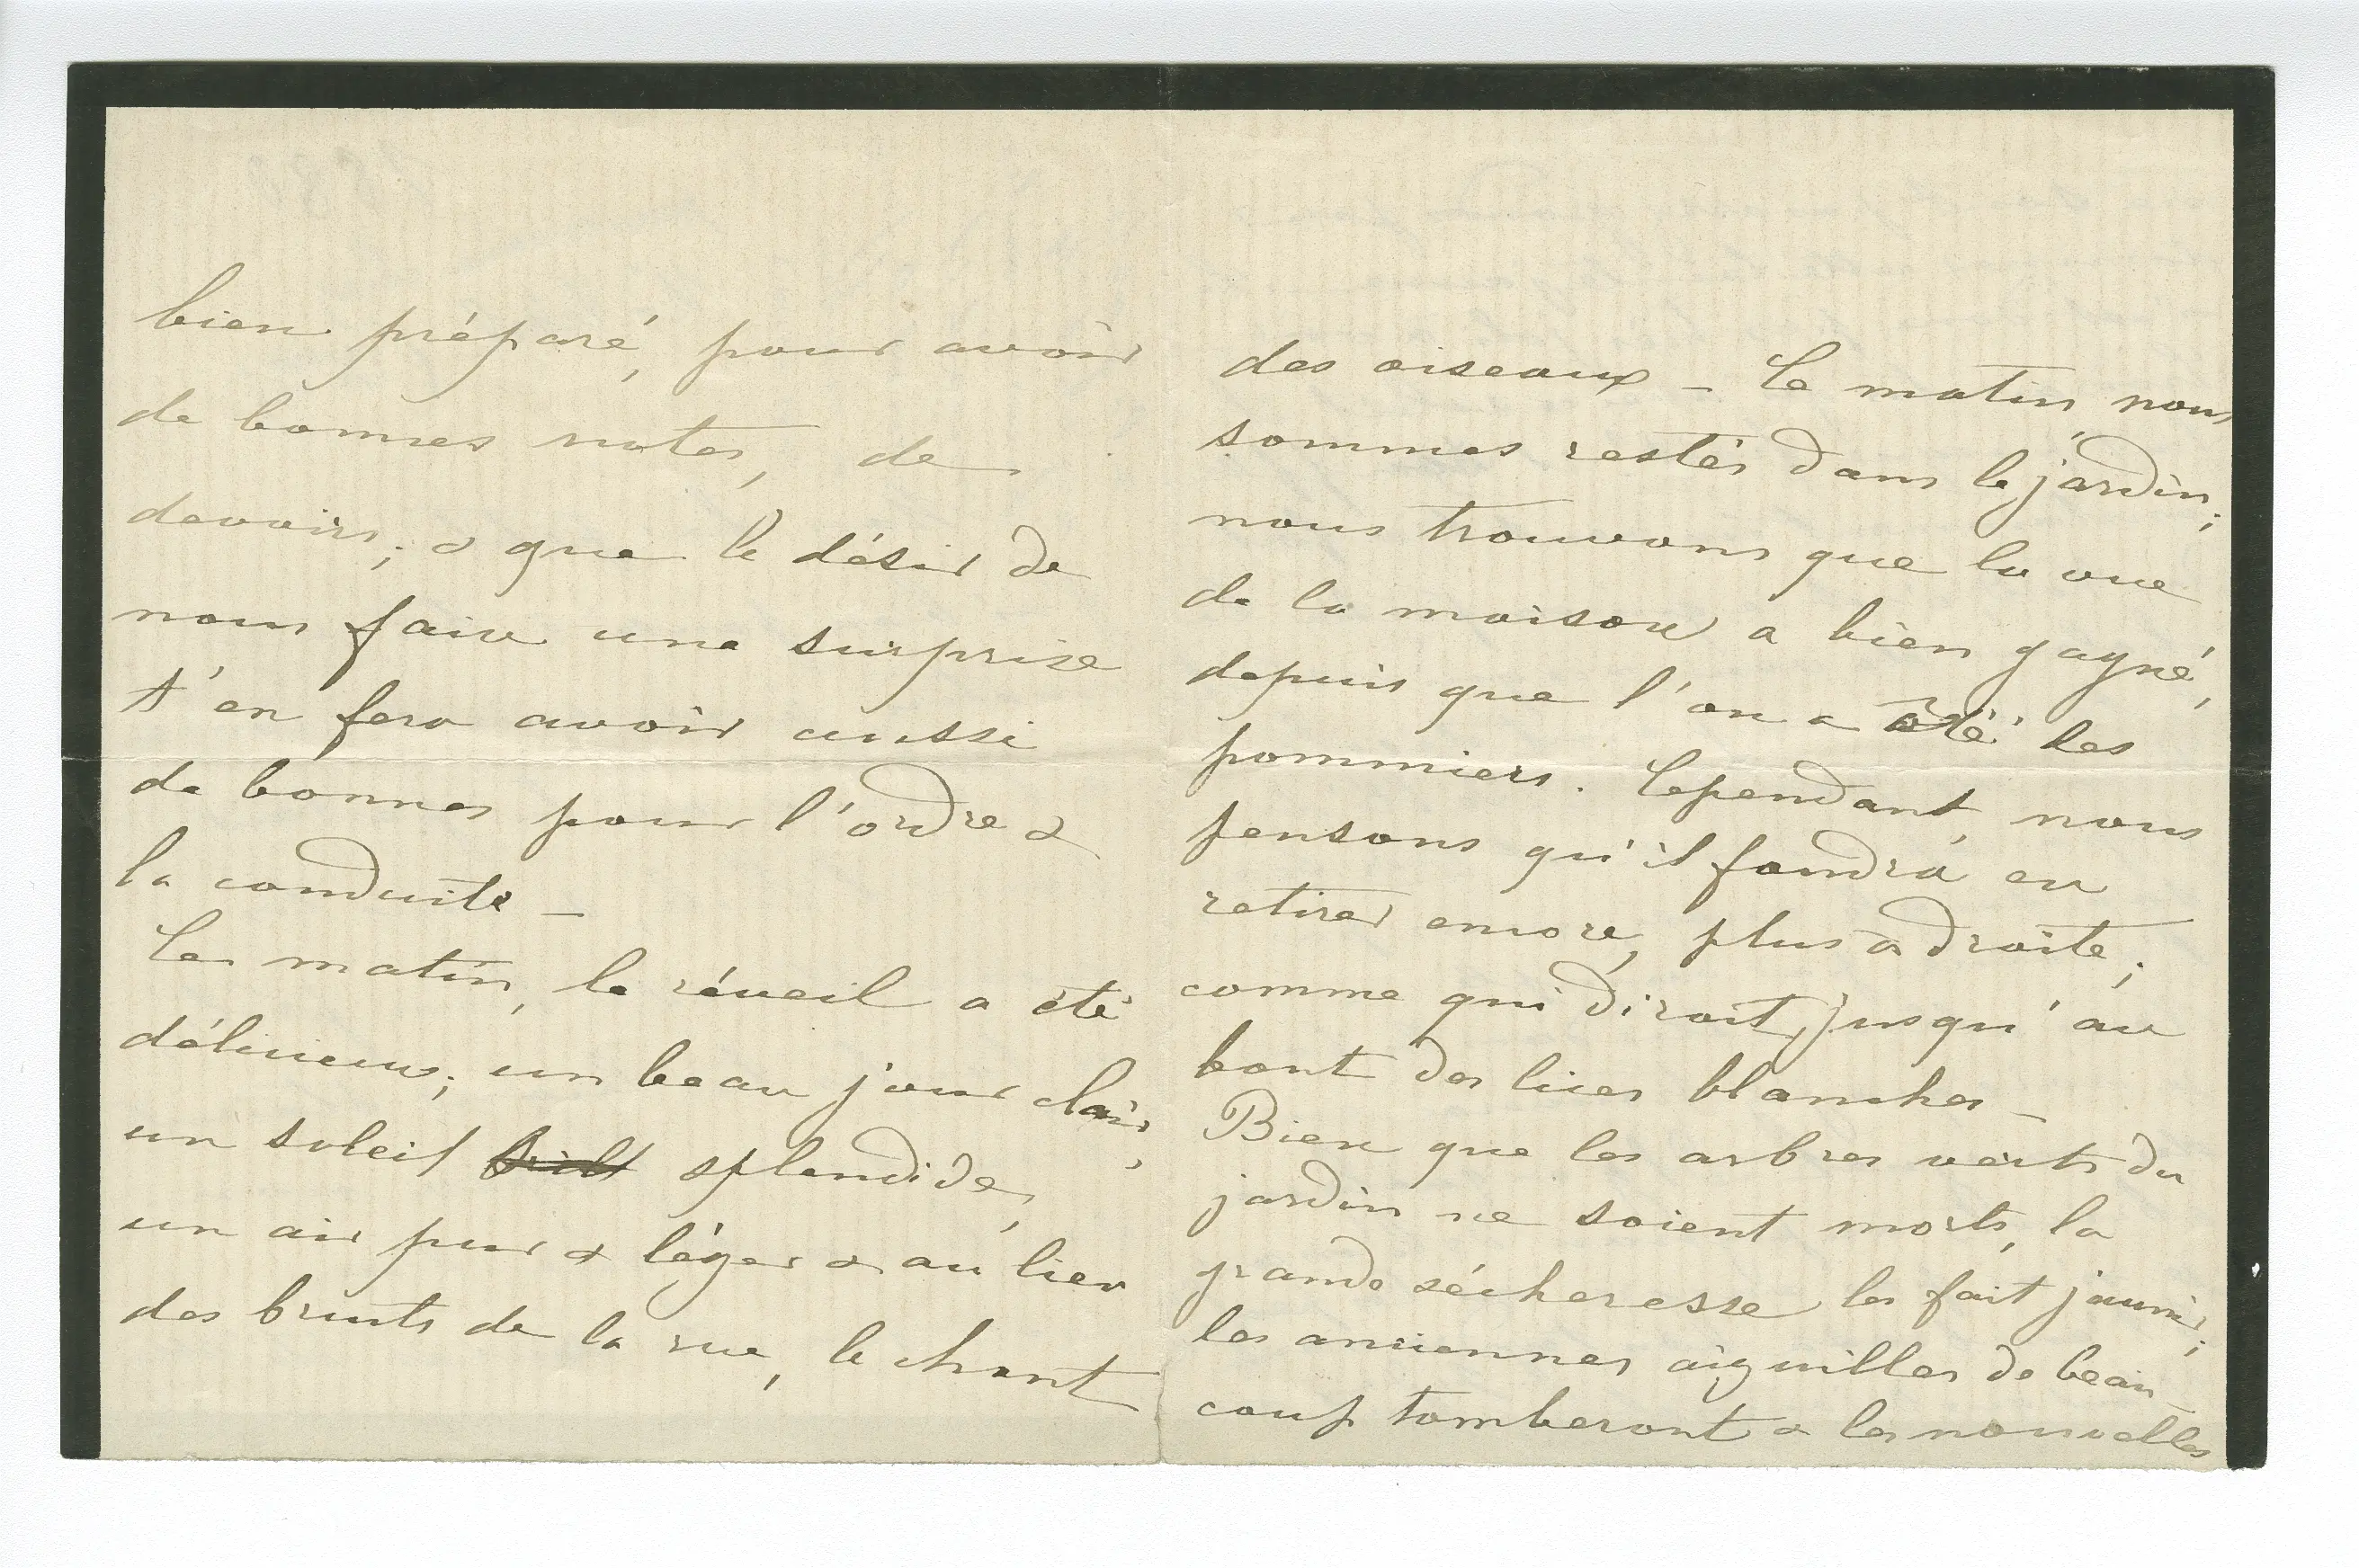 bien préparé, pour avoir
de bonnes notes, de
devoirs; & que le désir de
nous faire une surprise
t'en fera avoir aussi
de bonnes pour l'ordre &
la conduite —
Ce matin, le réveil a été
délicieux; un beau jour clair,
un soleil brill splendide,
un air pur & léger & au lieu
des bruits de la rue, le chant
des oiseaux — Ce matin, nous
sommes restés dans le jardin;
nous trouvons que la vue
de la maison a bien gagné,
depuis que l'on a ôté les
pommiers. Cependant, nous
pensons qu'il faudra en
retirer encore, plus à droite;
comme qui dirait, jusqu'au
bout des lices blanches —
Bien que les arbres verts du
jardin ne soient morts, la
grande sécheresse les fait jaunir;
les anciennes aiguilles de beau-
coup tomberont & les nouvelles